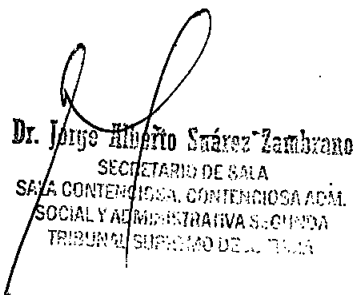 Dr. Jorge Alberto Suárez Zambrano
SECRETARIO DE SALA
SALA CONTENCIOSA, CONTENCIOSA ADM.
SOCIAL Y ADMINISTRATIVA SEGUNDA
TRIBUNAL SUPREMO DE JUSTICIA